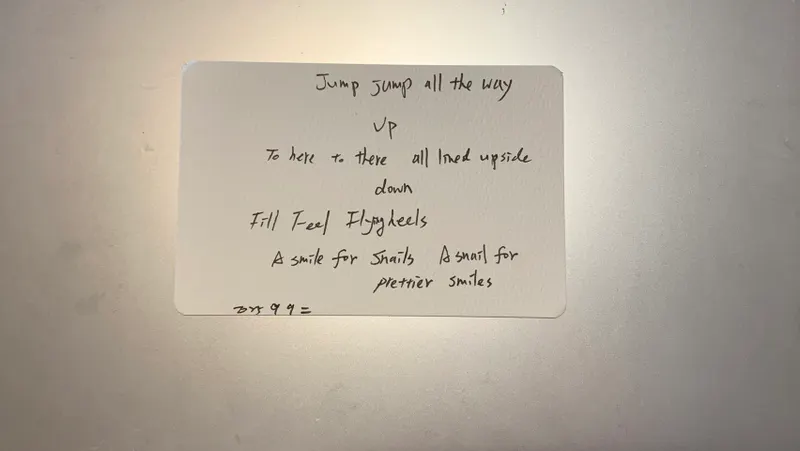 Jump Jump all the way
Up
To here to there all lined upside
down
Fill Feel
A smile for snails A snail for
prettier smiles